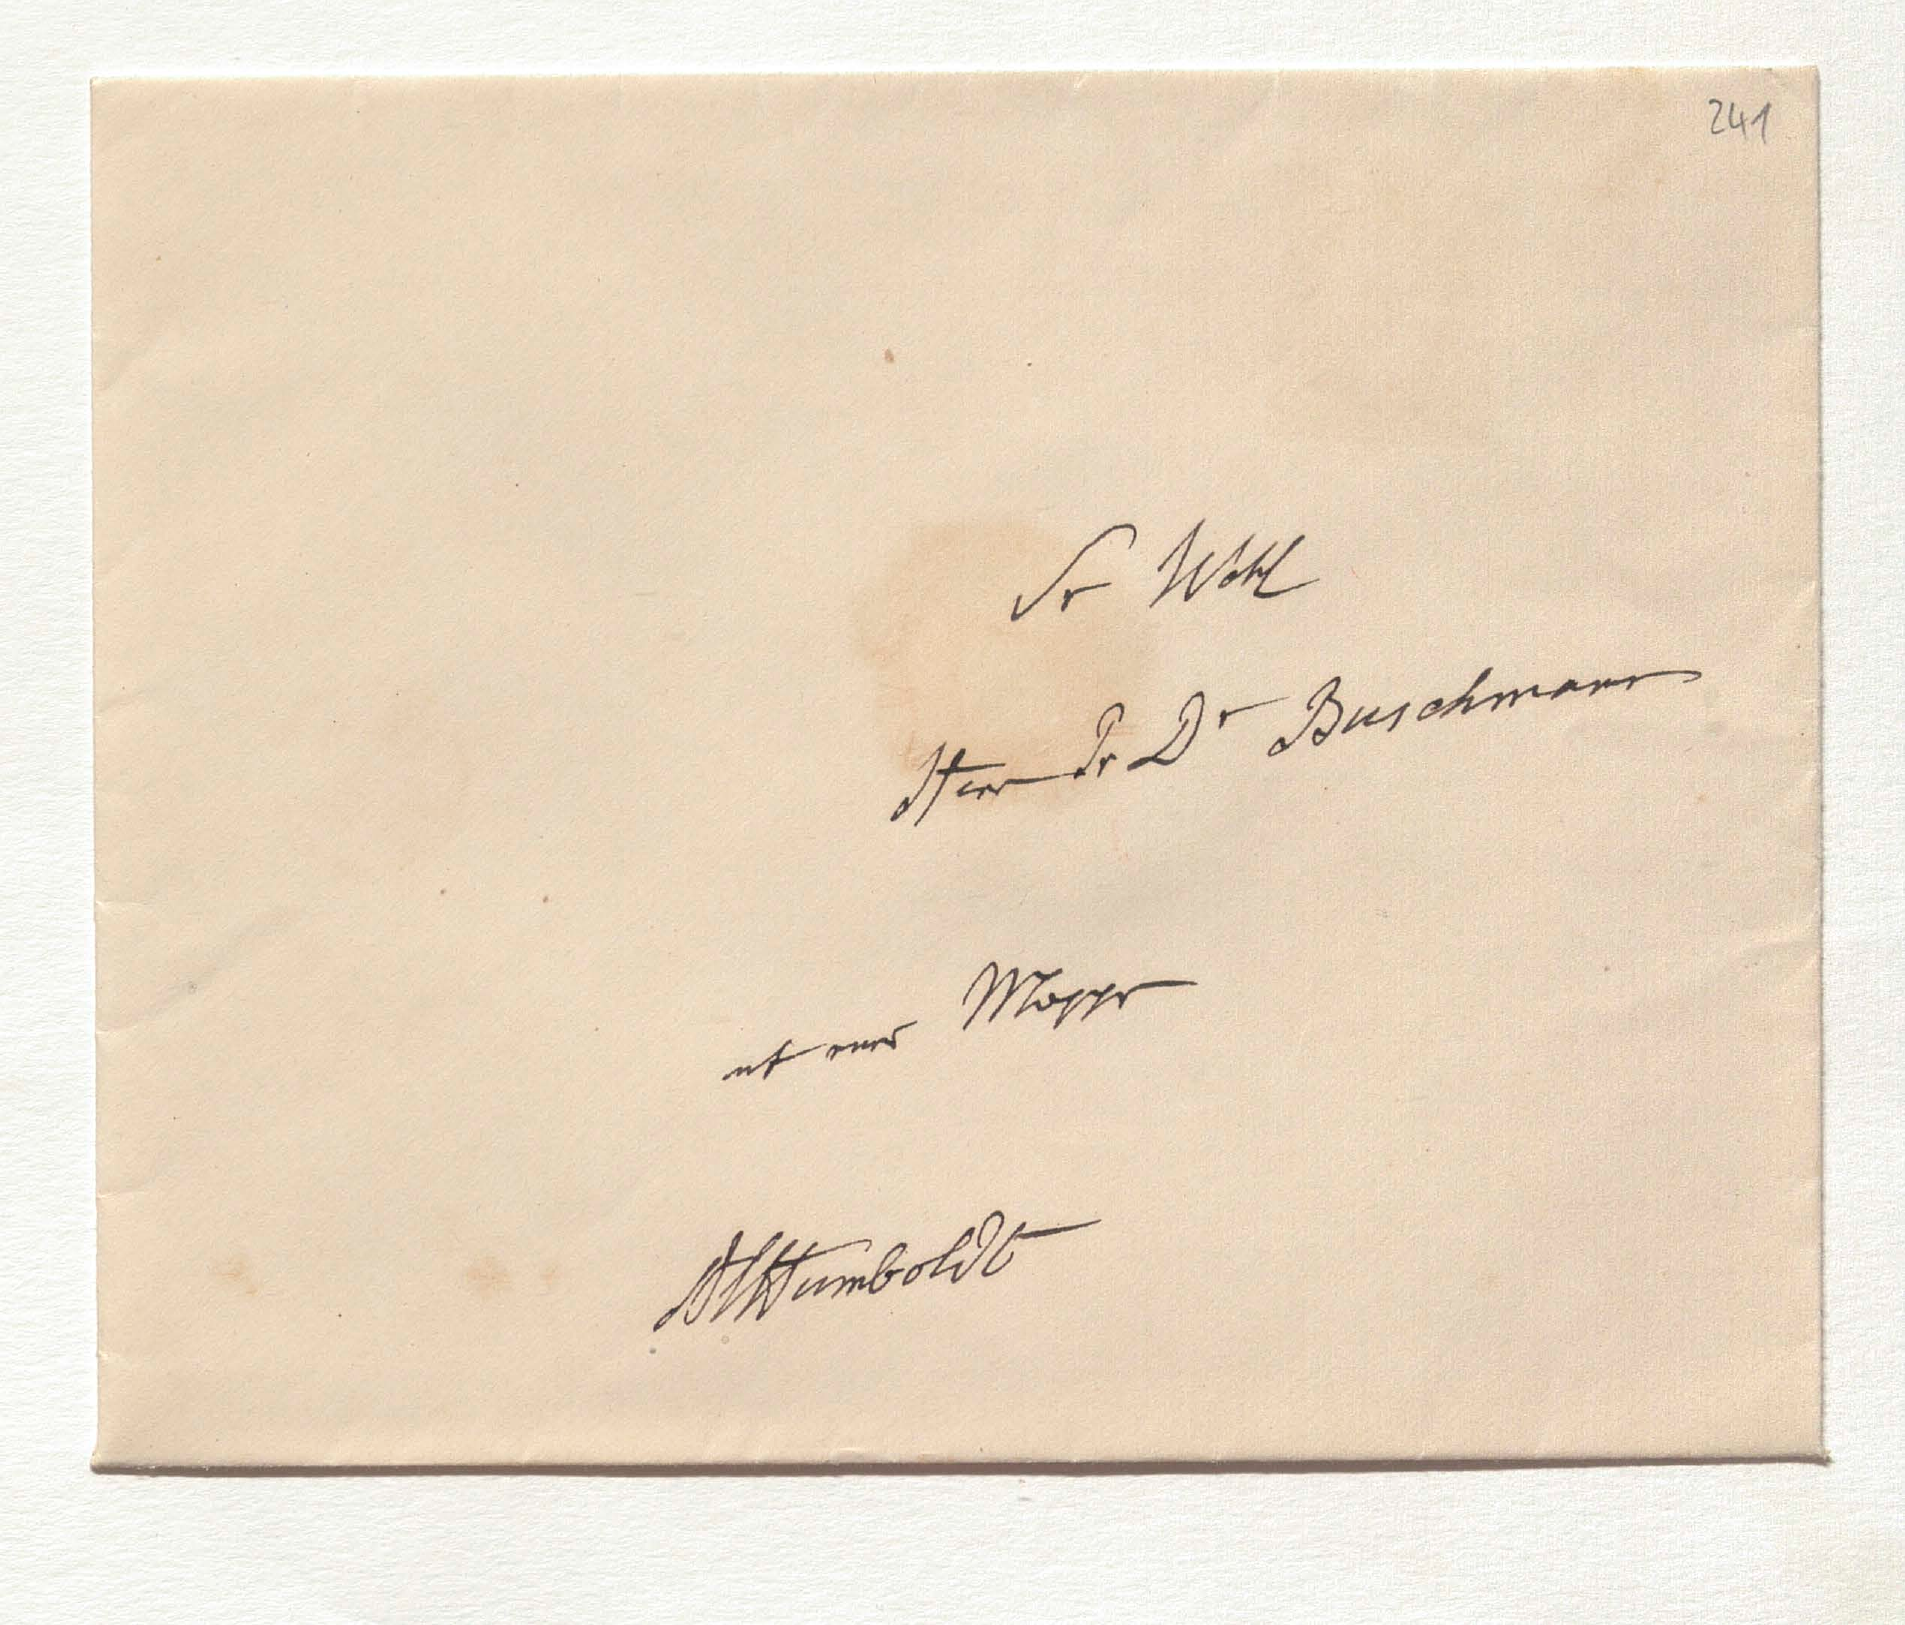 241
Sr Wohl
Herrn Pr Dr Buschmann
mit einer Mappe
AlHumboldt